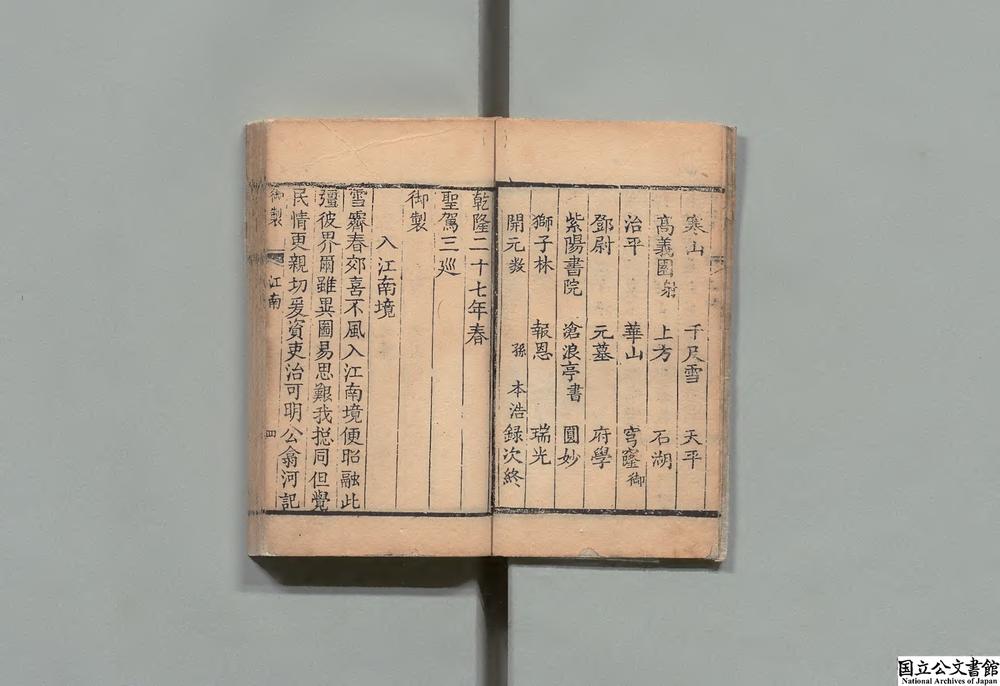 寒山　千尺雪　天平
高義園　上方　石湖
治平　華山　穹窿御
鄧尉　元墓　府學
紫陽書院　滄浪亭書　圓妙
獅子林　報恩　瑞光
開元教　孫　本浩錄次終
乾隆二十七年春
聖駕三廵
御製
入江南境
雪霽春郊喜不風入江南境便昭融此
疆彼界爾雖異圖易思艱我揔同但覺
民情更親切爰資吏治可明公翕河記
御製　江南　四
国立公文書館
National Archives of Japan